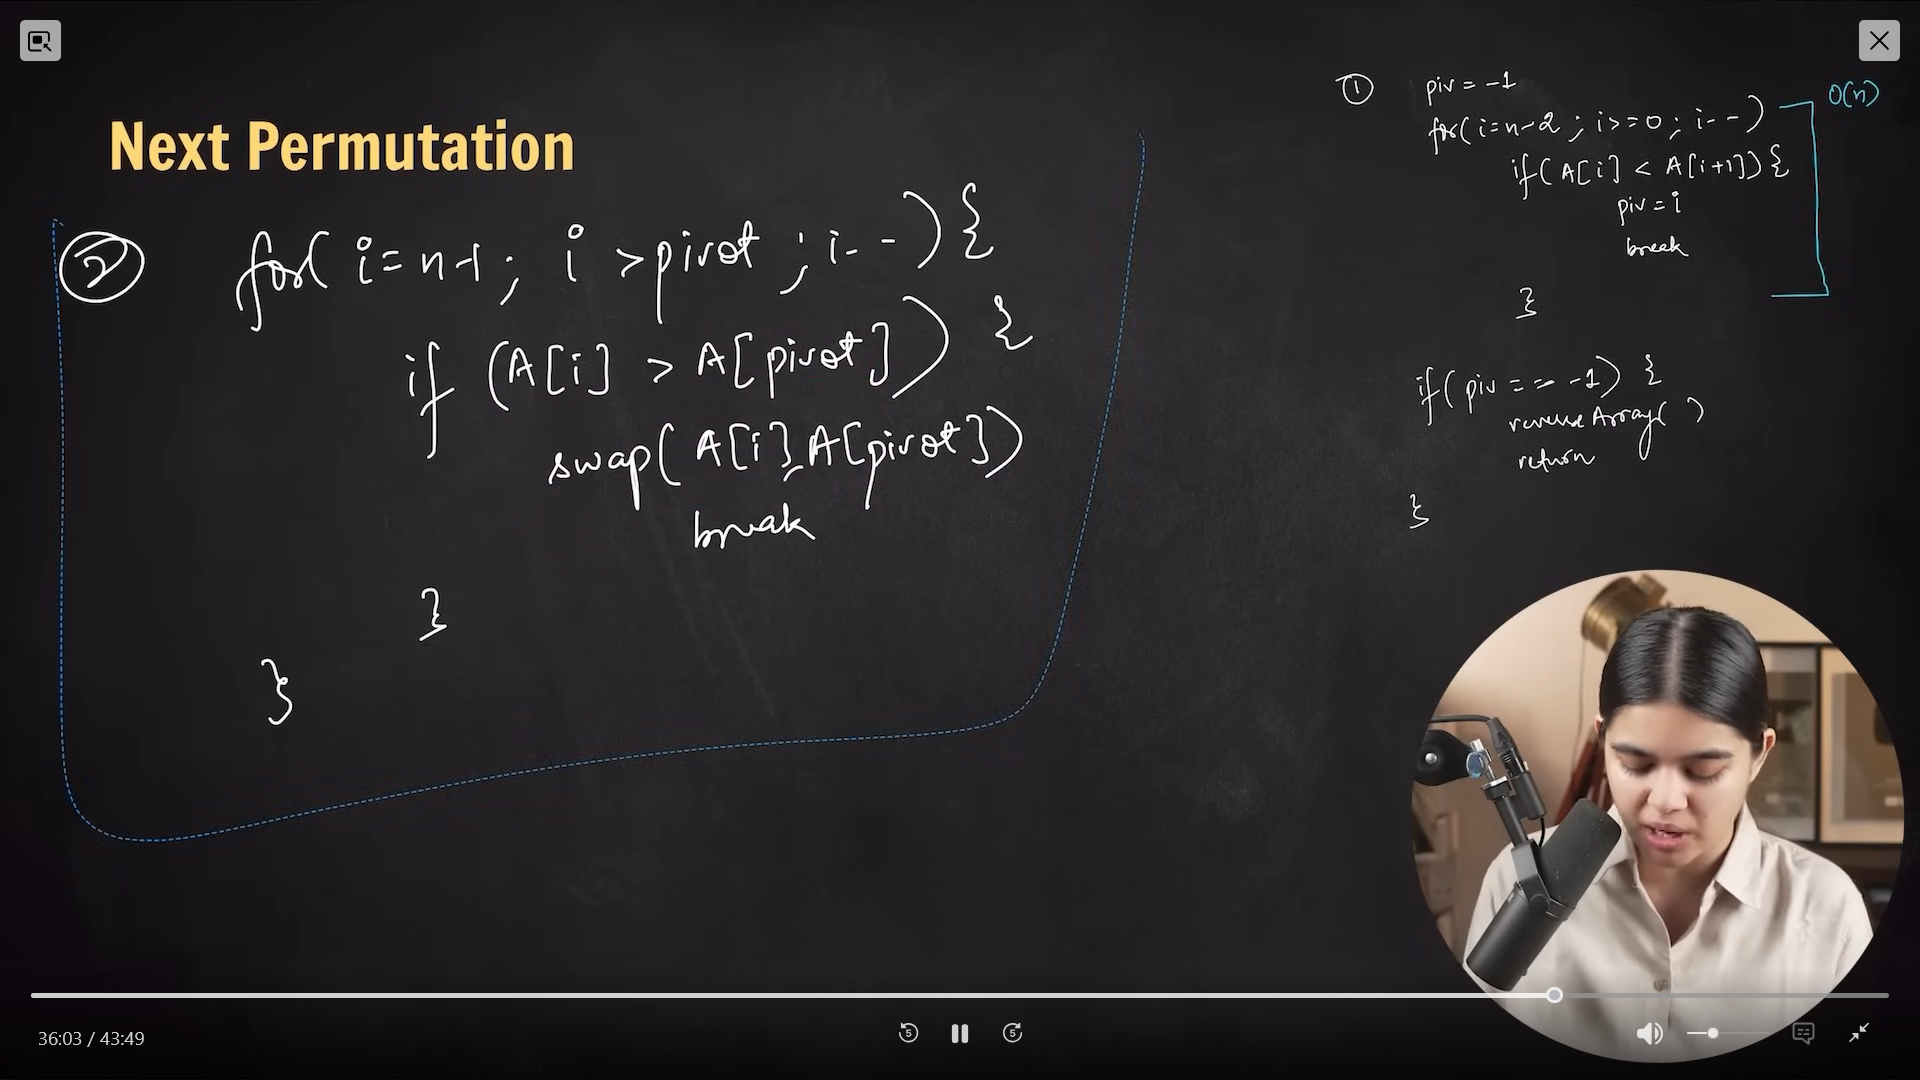 Next Permutation
② for( i=n-1; i >pivot ; i-- ) {
if (A[i] > A[pivot]) {
swap( A[i], A[pivot])
break
}
}
① piv = -1
for( i=n-2 ; i>=0 ; i-- )
if( A[i] < A[i+1]) {
piv = i
break
}
if( piv == -1) {
reverseArray( )
return
}
O(n)
36:03 / 43:49
5
5